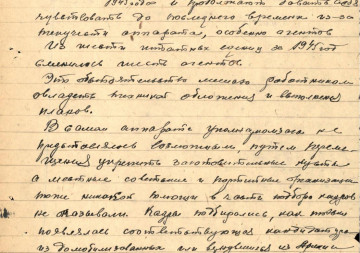 1945 года и продолжает давать себя
чувствовать до последнего времени из-за
текучести аппарата, особенно агентов
Из шести штатных единиц за 1945 год
сменилось шесть агентов.
Это обстоятельство мешало работникам
овладеть техникой обложения и выполнения
планов.
В самом аппарате уполномзага не
представлялось возможным, путем
укрепить заготовительные пункты
а местные советские и партийные организации
тоже никакой помощи в части подбора кадров
не оказывали. Кадры подбирались, как только
появлялась соответствующая кандидатура
из демобилизованных или вернувшихся из Армии